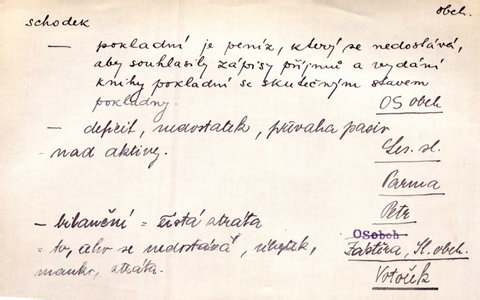 schodek
obch.
— pokladní je peníz, který se nedostává,
aby souhlasily zápisy příjmů a vydání
knihy pokladní se skutečným stavem
pokladny.
OS obch
— deficit, nedostatek, převaha pasiv
nad aktivy.
Les. sl.
Parma
Petr
— bilanční = čistá ztráta
OSobch
= to, oč se nedostává, úbytek,
Zaktira, Sl. obch.
manko, ztráta.
Votoček